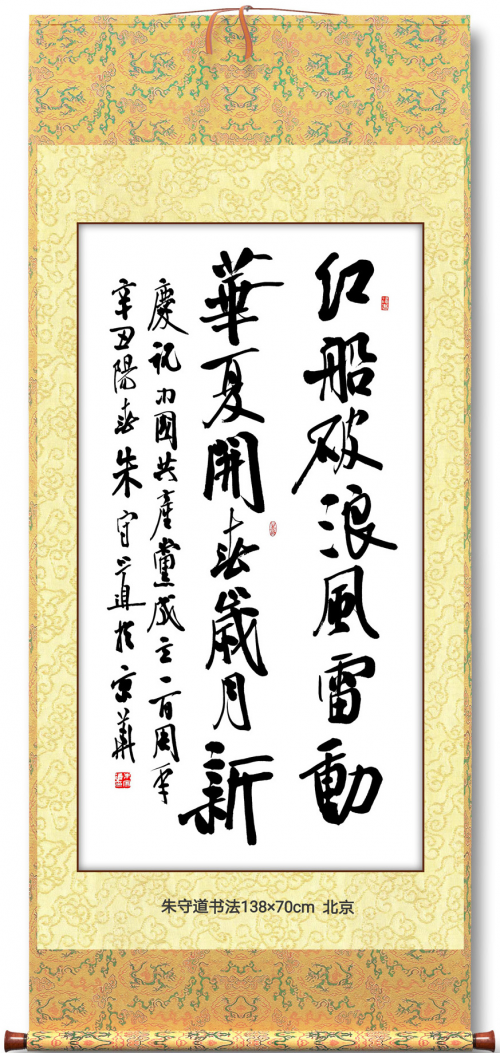 红船破浪風雷動
華夏開春歲月新
慶祝中國共產黨成立一百周年
辛丑陽春朱守道於京華
朱守道书法138×70cm 北京